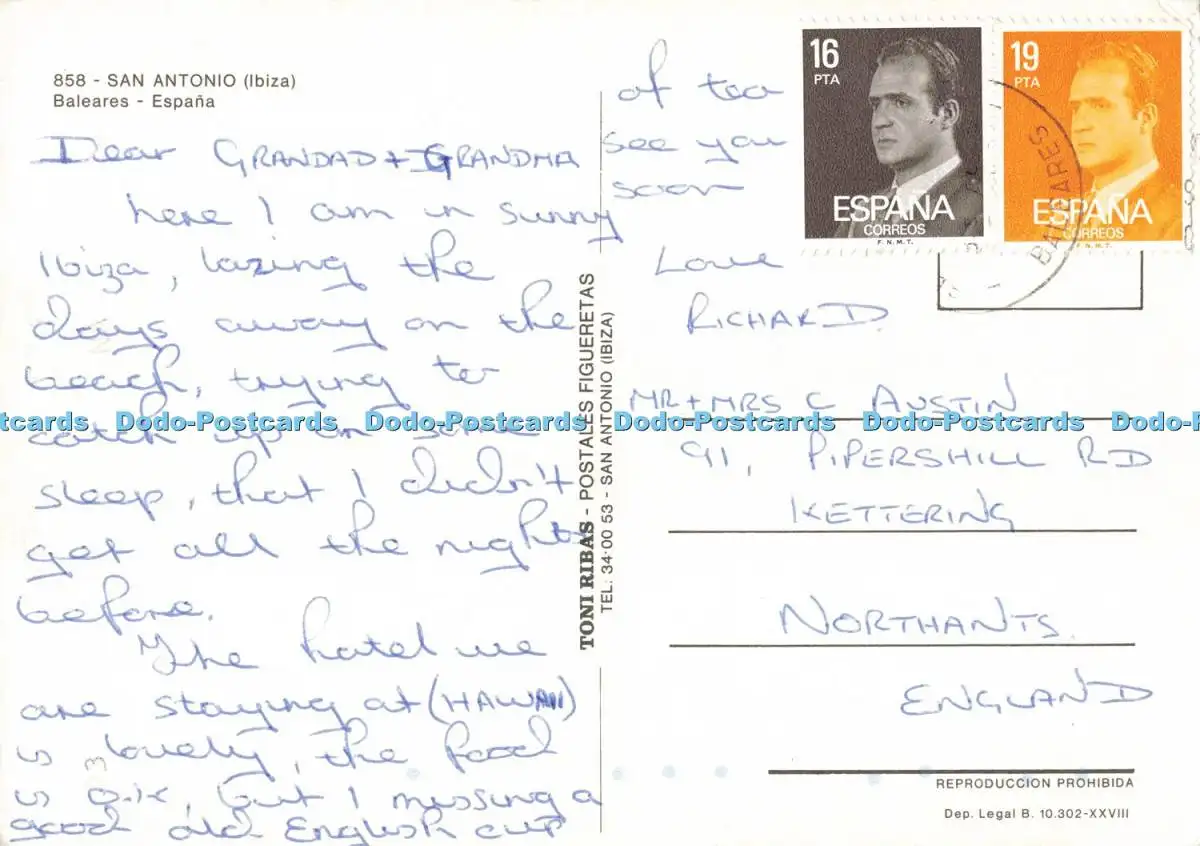 858 - SAN ANTONIO (Ibiza)
Baleares - España
Dear GRANDAD + GRANDMA
here I am in sunny
Ibiza, lazing the
days away on the
beach, trying to
catch up on some
sleep, that I didn't
get all the nights
before.
The hotel we
are staying at (HAWAII)
is lovely, the food
is O.K, but I missing a
good old English cup
of tea
see you
soon
Love
RICHARD.
TONI RIBAS - POSTALES FIGUERETAS
TEL: 34 00 53 - SAN ANTONIO (IBIZA)
16
PTA
ESPAÑA
CORREOS
F.N.M.T.
19
PTA
ESPAÑA
CORREOS
F.N.M.T.
BALEARES
MR + MRS C AUSTIN
91, PIPERSHILL RD
KETTERING
NORTHANTS.
ENGLAND
REPRODUCCION PROHIBIDA
Dep. Legal B. 10.302-XXVIII
Dodo-Postcards Dodo-Postcards Dodo-Postcards Dodo-Postcards Dodo-Postcards